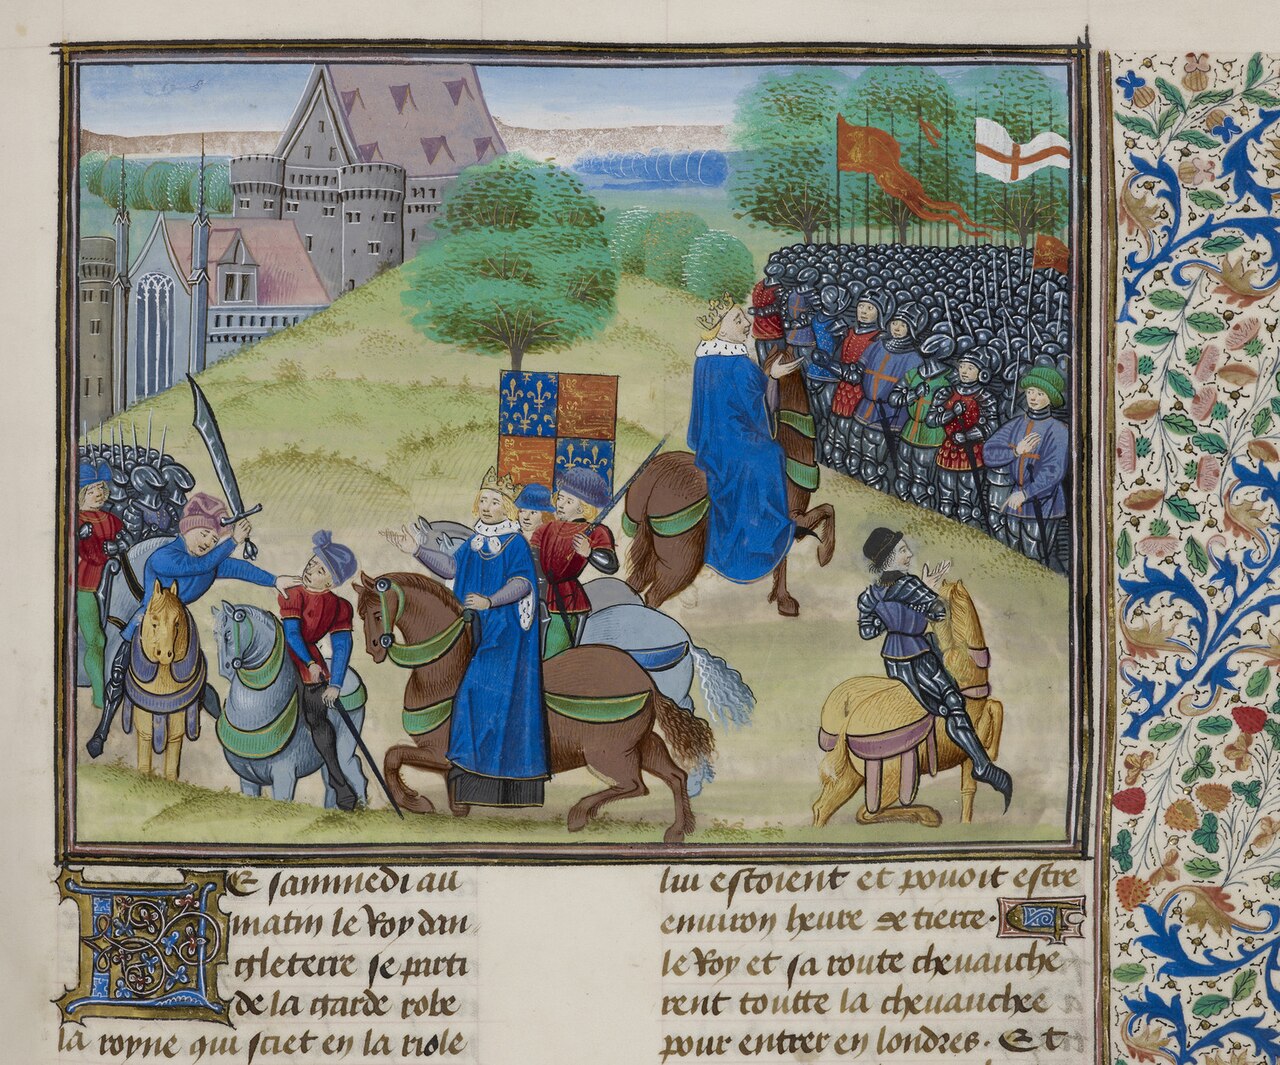 LE sammedi au
matin le Roy dan
gleterre se parti
de la garde robe
la royne qui sciet en la riole
lui estoient et pouoit estre
enuiron heure de tierce. Et
le Roy et sa route cheuauche
rent toutte la cheuauchee
pour entrer en londres. Et